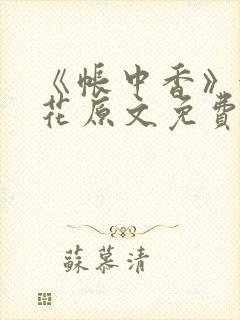 《帳中香》
花原文免費
蘇慕清